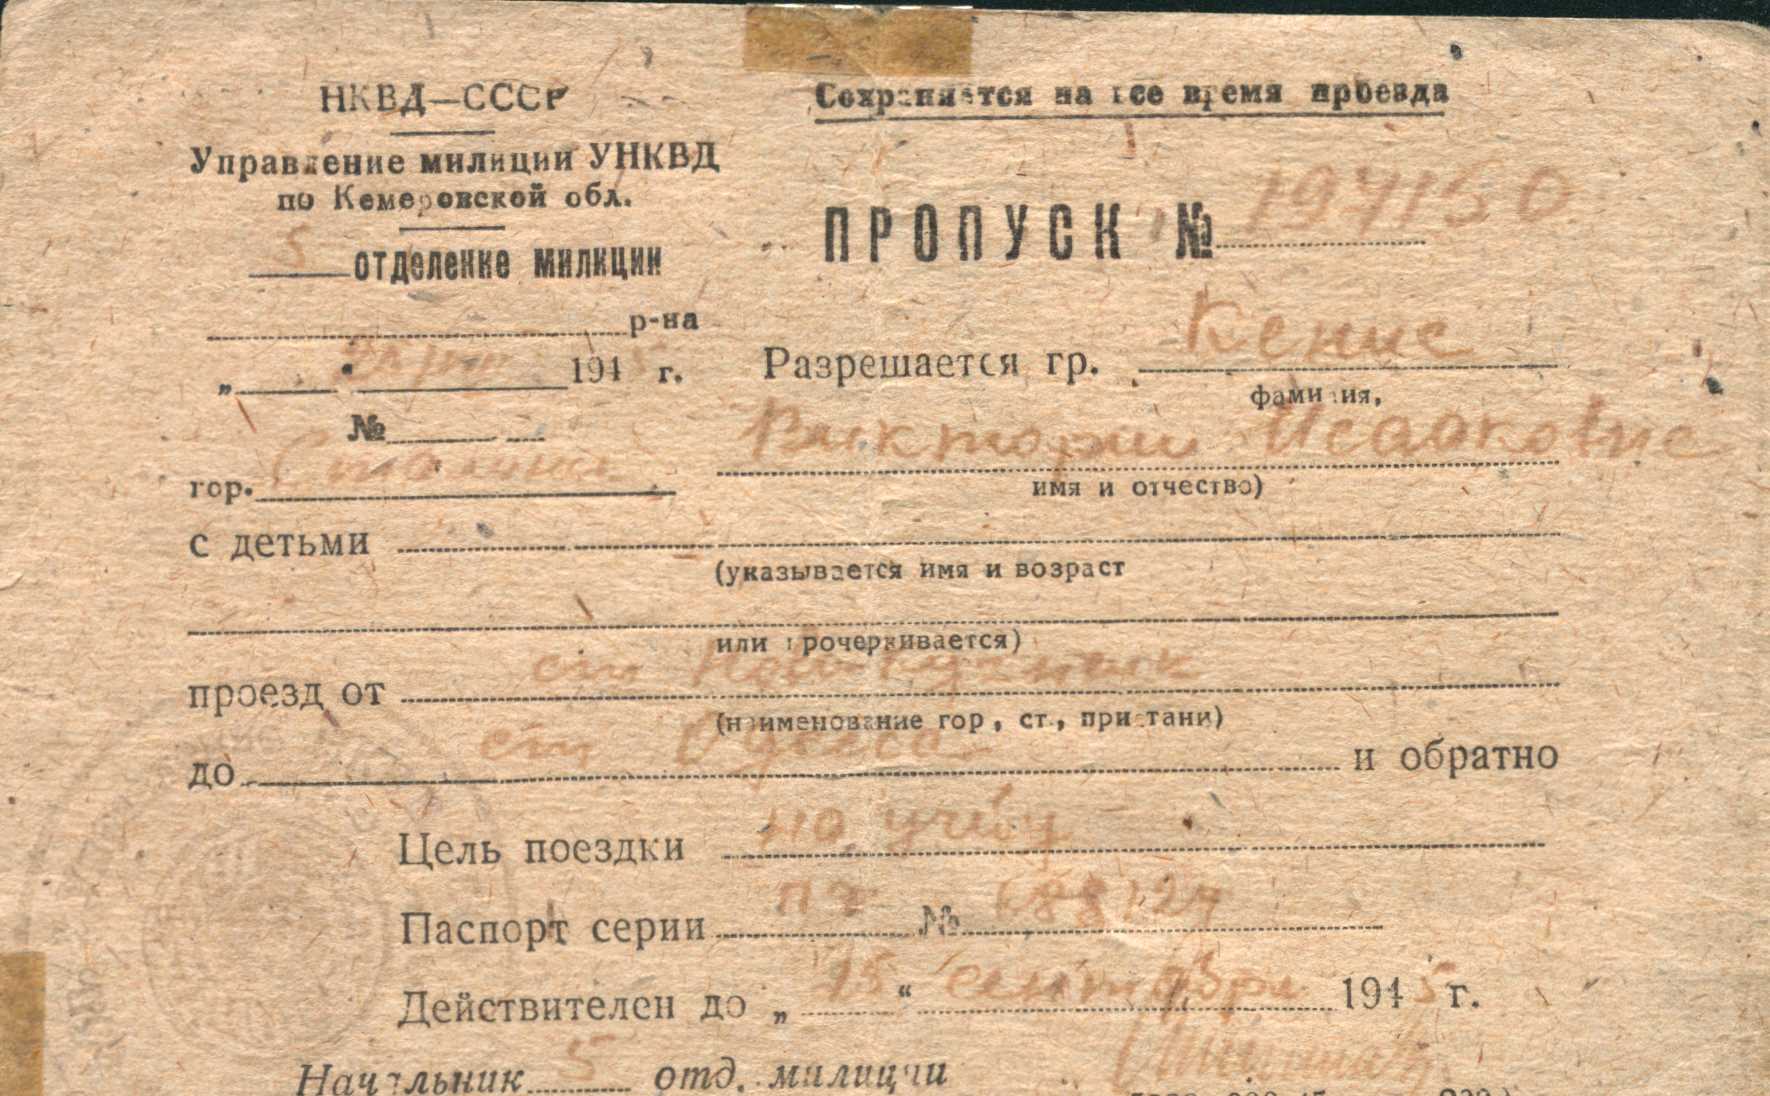 НКВД—СССР
Управление милиции УНКВД
по Кемеровской обл.
5 отделение милиции
р-на
„ 1945 г.
№
гор. Сталинск
Сохраняется на все время проезда
ПРОПУСК № 197150
Разрешается гр. Кенис
фамилия,
Виктории Исааковне
имя и отчество)
с детьми
(указывается имя и возраст
или прочеркивается)
проезд от ст Новокузнецк
(наименование гор, ст., пристани)
до ст Одесса и обратно
Цель поездки на учебу
Паспорт серии №
Действителен до „15“ сентября 1945 г.
Начальник 5 отд. милиции